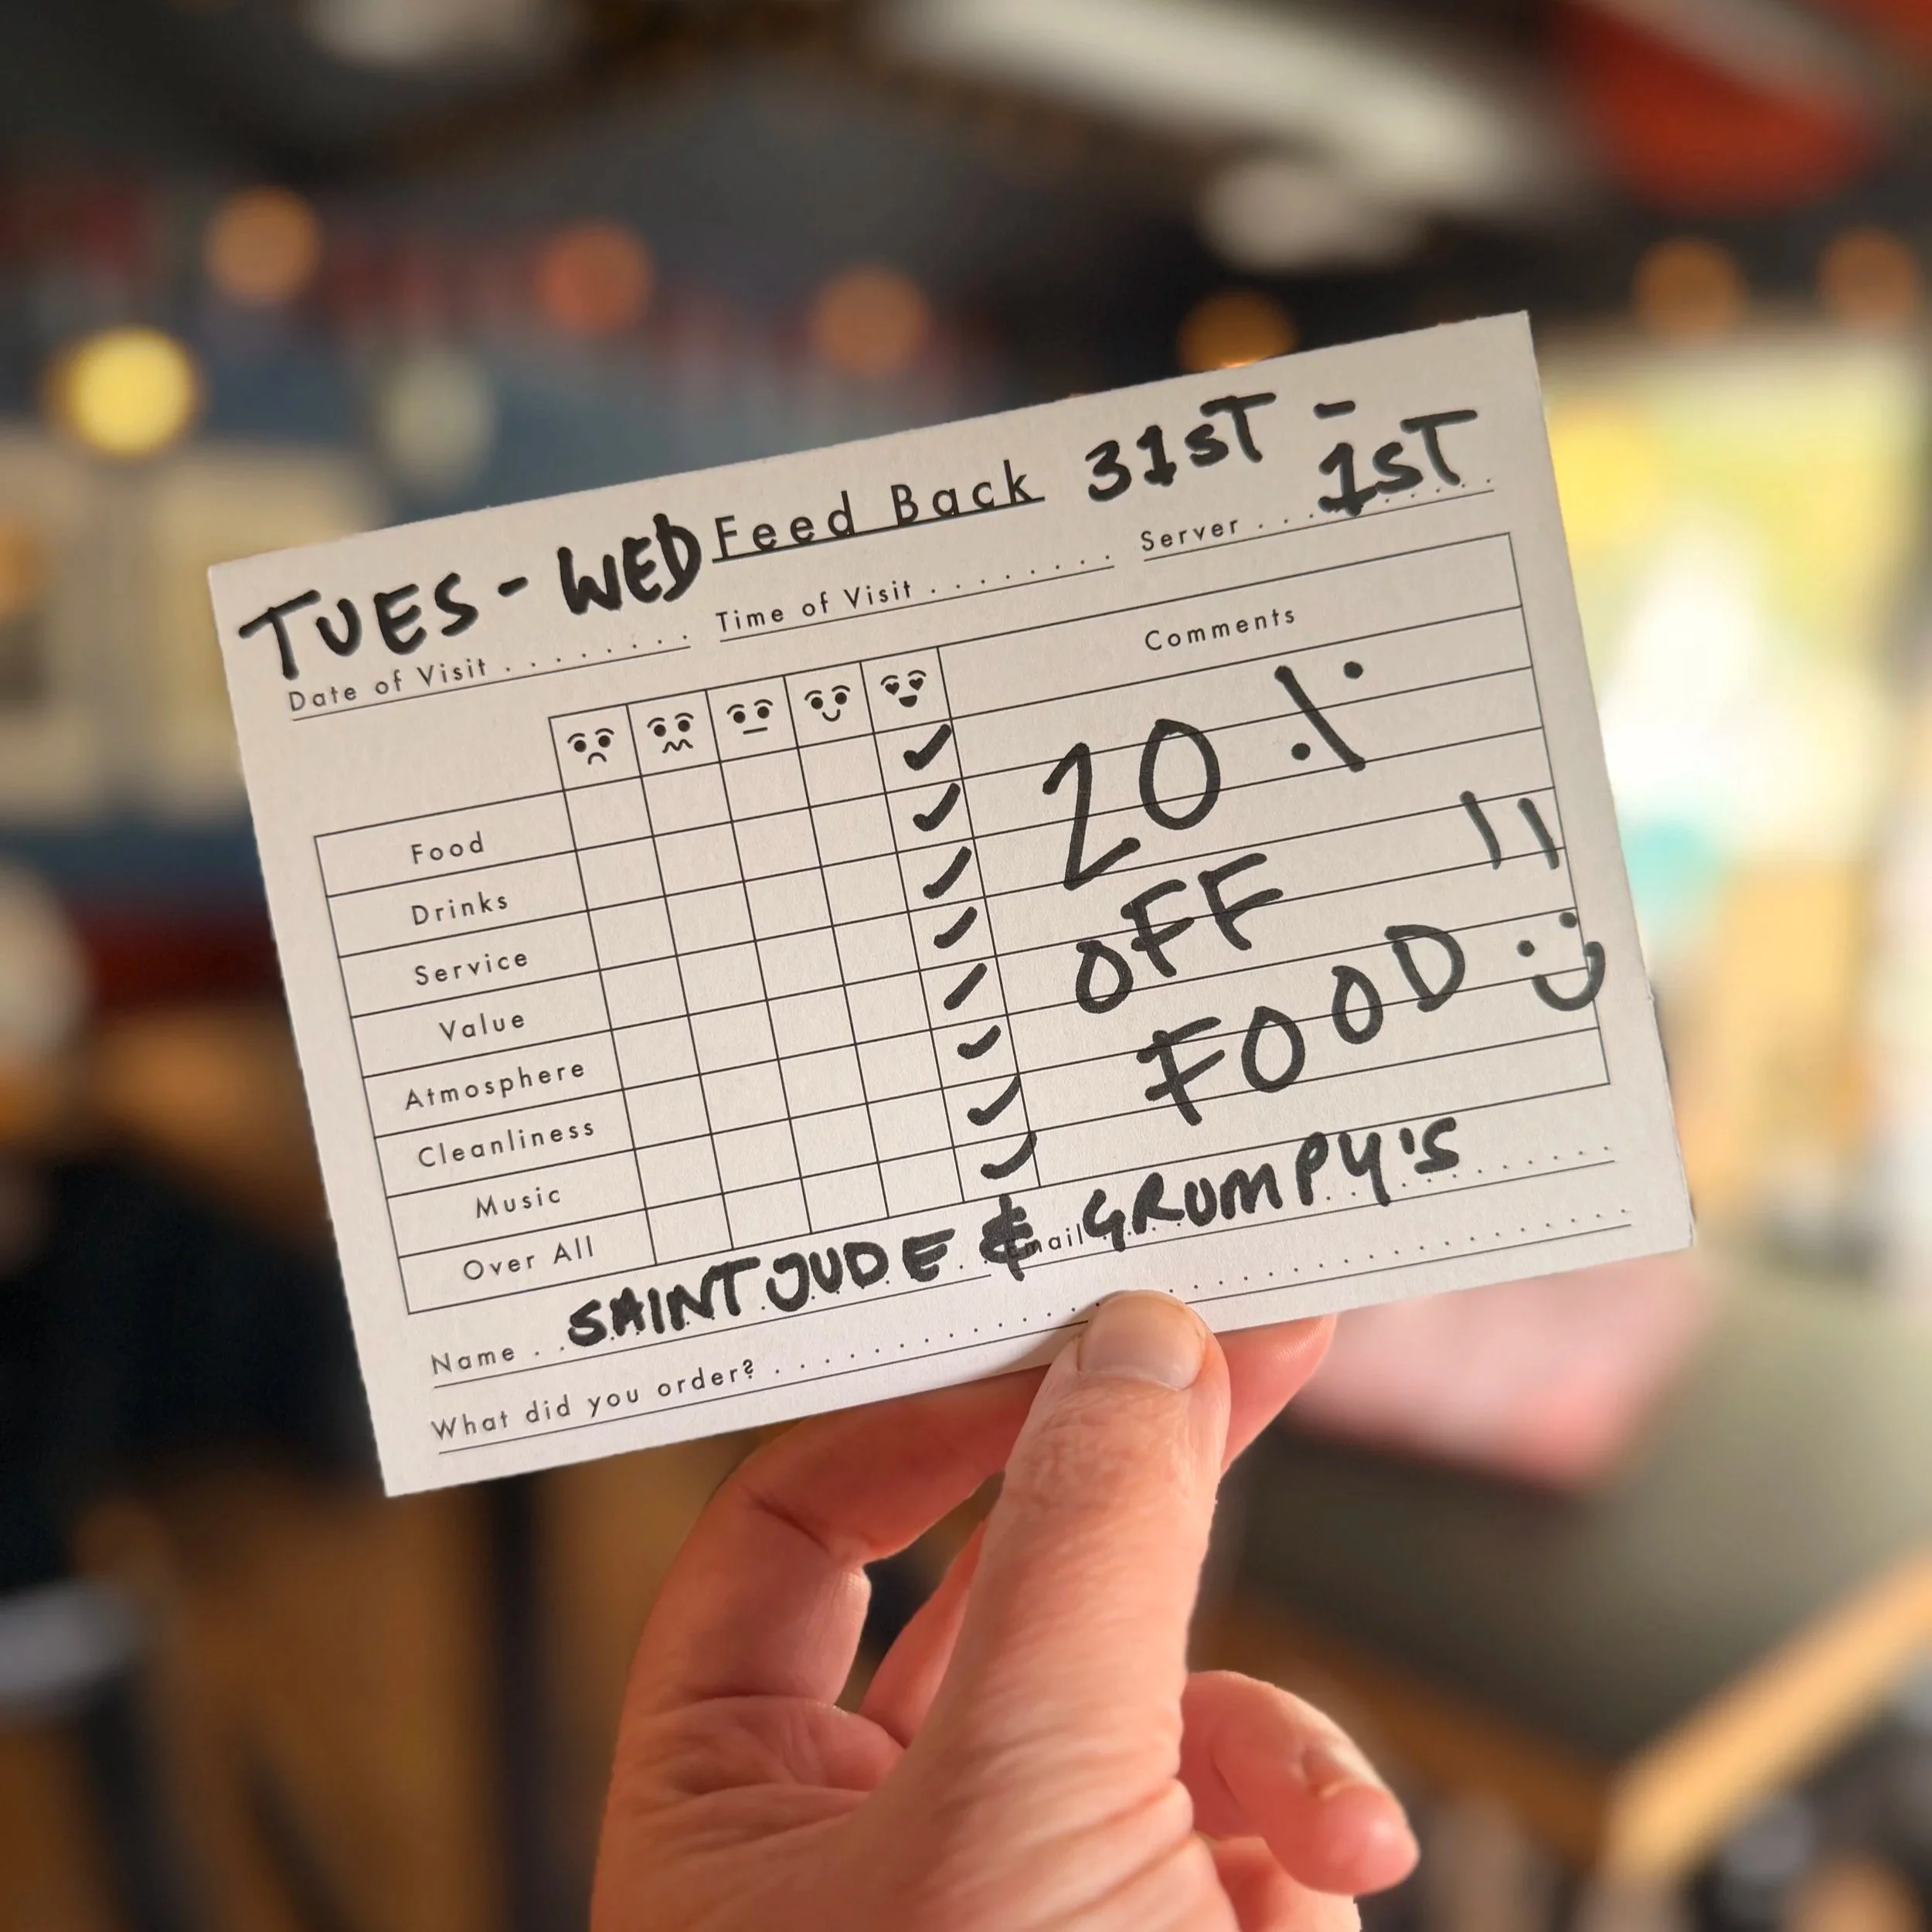 TUES - WED Feed Back 31ST - 1ST
Date of Visit . . . . . . . . Time of Visit . . . . . . . . Server . . . . . . . . .
Comments
Food
Drinks
Service
Value
Atmosphere
Cleanliness
Music
Over All
20%
OFF
FOOD !! :)
Name . . SAINT JUDE & GRUMPY'S
Email
What did you order? . . . . . . . . . . . . . . . . . . . .